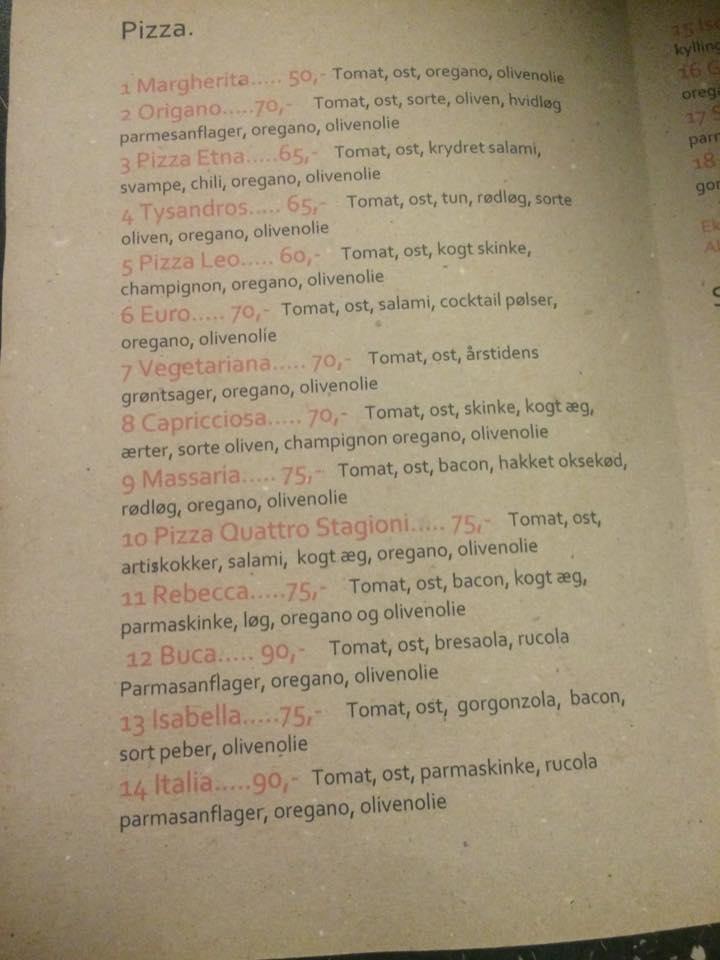 Pizza.
1 Margherita..... 50,- Tomat, ost, oregano, olivenolie
2 Origano.....70,- Tomat, ost, sorte, oliven, hvidløg
parmesanflager, oregano, olivenolie
3 Pizza Etna.....65,- Tomat, ost, krydret salami,
svampe, chili, oregano, olivenolie
4 Tysandros..... 65,- Tomat, ost, tun, rødløg, sorte
oliven, oregano, olivenolie
5 Pizza Leo..... 60,- Tomat, ost, kogt skinke,
champignon, oregano, olivenolie
6 Euro..... 70,- Tomat, ost, salami, cocktail pølser,
oregano, olivenolie
7 Vegetariana..... 70,- Tomat, ost, årstidens
grøntsager, oregano, olivenolie
8 Capricciosa..... 70,- Tomat, ost, skinke, kogt æg,
ærter, sorte oliven, champignon oregano, olivenolie
9 Massaria..... 75,- Tomat, ost, bacon, hakket oksekød,
rødløg, oregano, olivenolie
10 Pizza Quattro Stagioni..... 75,- Tomat, ost,
artiskokker, salami, kogt æg, oregano, olivenolie
11 Rebecca.....75,- Tomat, ost, bacon, kogt æg,
parmaskinke, løg, oregano og olivenolie
12 Buca..... 90,- Tomat, ost, bresaola, rucola
Parmasanflager, oregano, olivenolie
13 Isabella.....75,- Tomat, ost, gorgonzola, bacon,
sort peber, olivenolie
14 Italia.....90,- Tomat, ost, parmaskinke, rucola
parmasanflager, oregano, olivenolie
15
16
17
18